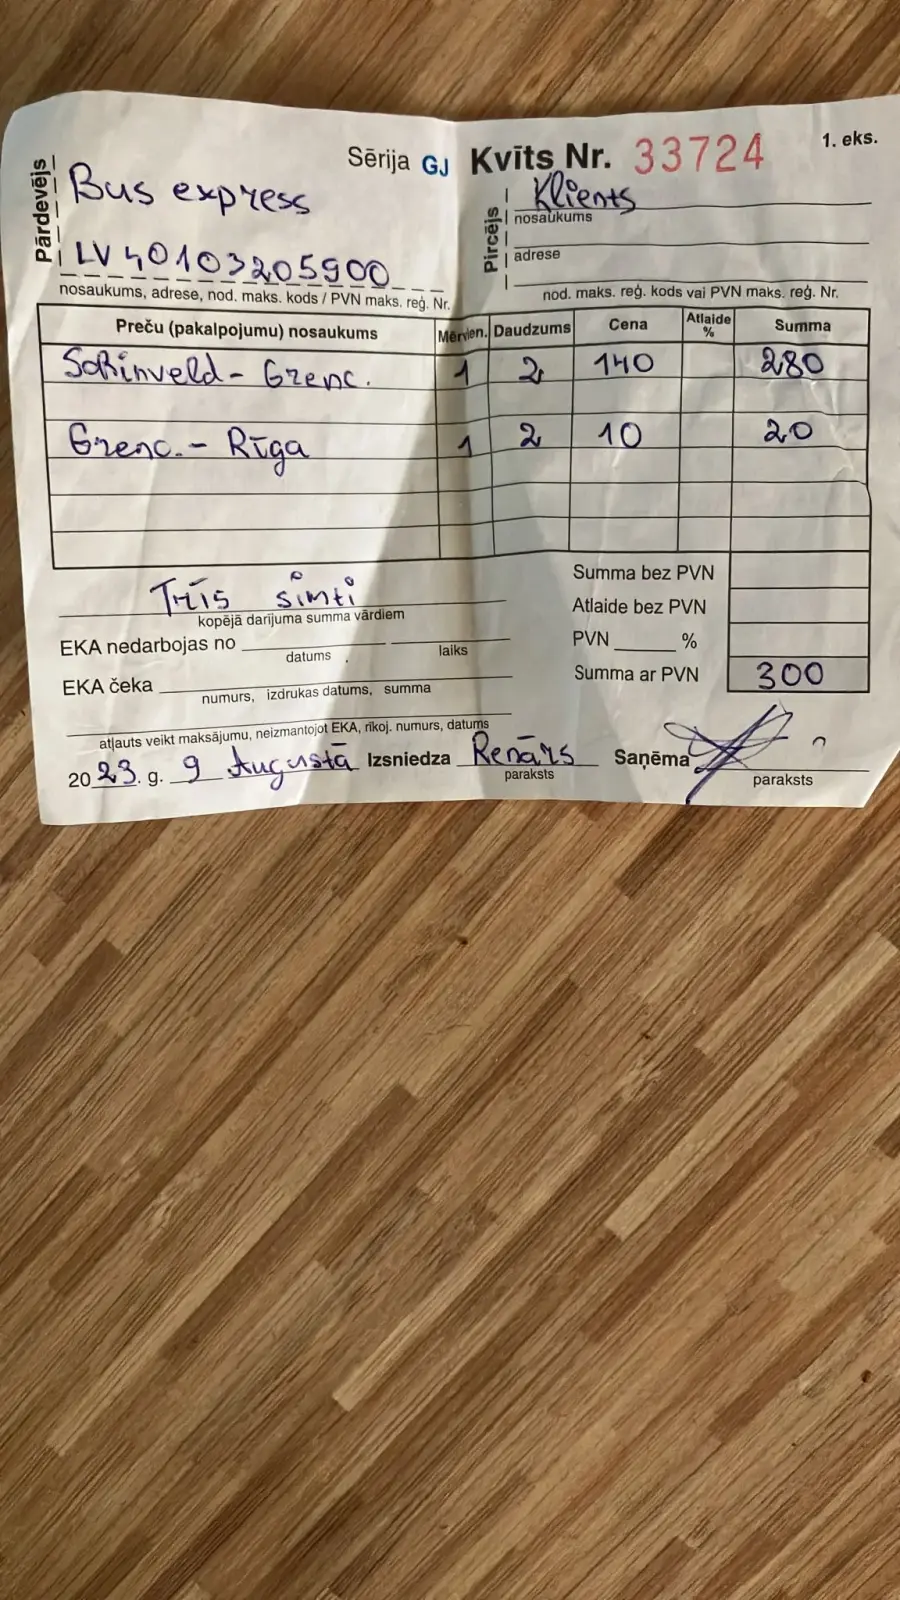 Sērija GJ Kvīts Nr. 33724 1. eks.
Pārdevējs
Bus express
LV 40103205900
nosaukums, adrese, nod. maks. kods / PVN maks. reģ. Nr.
Pircējs
Klients
nosaukums
adrese
nod. maks. reģ. kods vai PVN maks. reģ. Nr.
Preču (pakalpojumu) nosaukums Mērvien. Daudzums Cena Atlaide % Summa
- Grenc. 1 2 140 280
Grenc. - Rīga 1 2 10 20
Trīs simti
kopējā darījuma summa vārdiem
Summa bez PVN
Atlaide bez PVN
EKA nedarbojas no
datums, laiks
PVN %
EKA čeka
numurs, izdrukas datums, summa
Summa ar PVN 300
atļauts veikt maksājumu, neizmantojot EKA, rīkoj. numurs, datums
2023. g. 9 Augustā Izsniedza Renārs Saņēma
paraksts paraksts